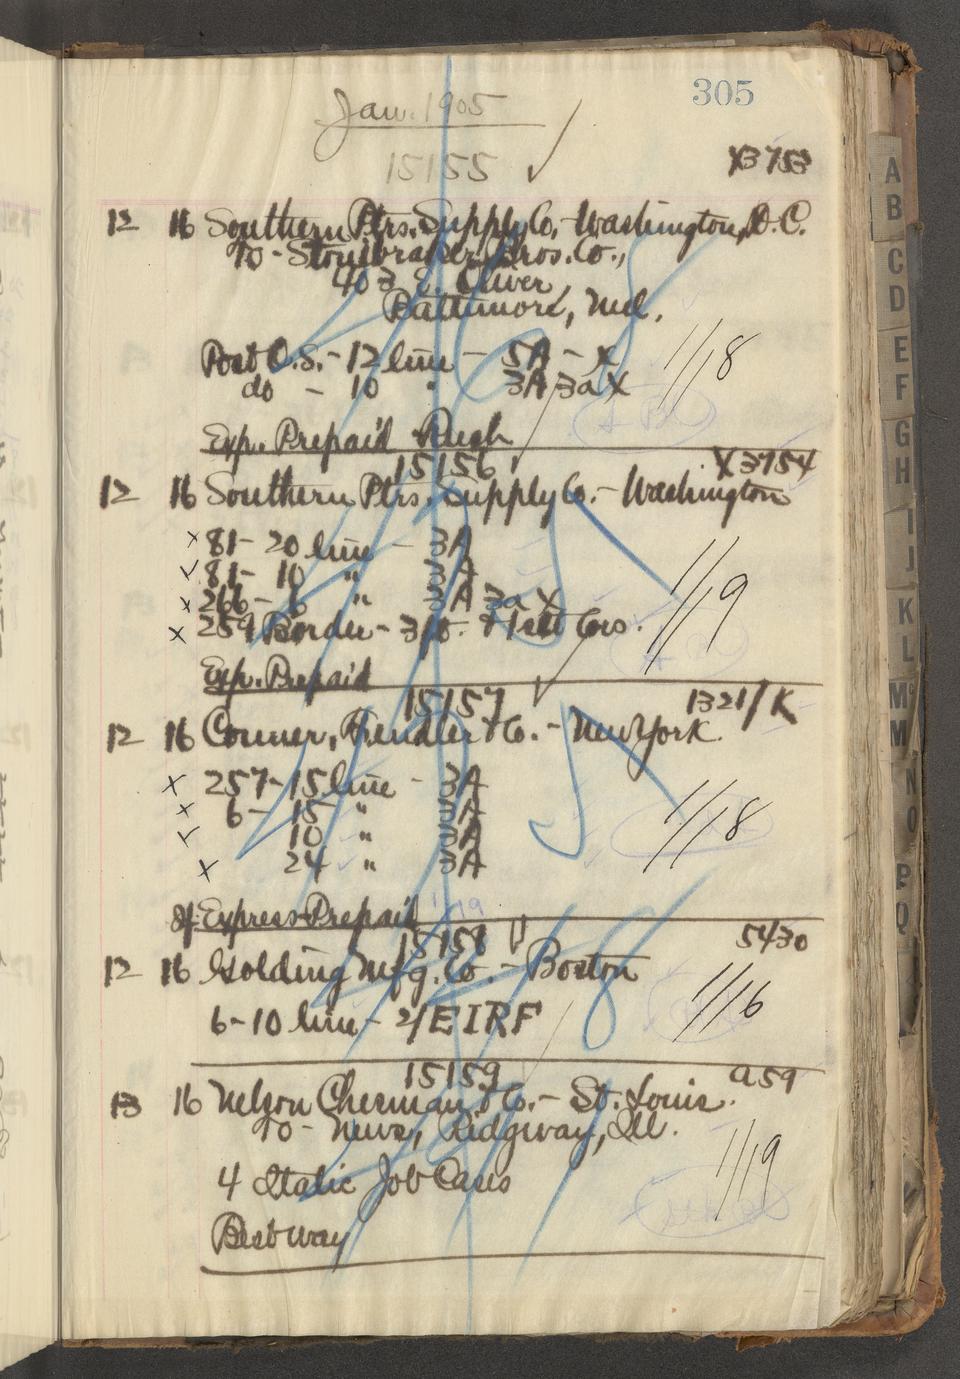 305
Jan. 1905
15155
X3753
12 16 Southern Ptrs. Supply Co, - Washington, D.C.
To - Stonebraker Bros. Co.,
403 E. Oliver
Baltimore, Md.
Post O.S. - 12 line - 5A - X
do - 10 " 3A 3a X
1/18
Exp. Prepaid Rush
15156
X3754
12 16 Southern Ptrs. Supply Co. - Washington
X 81 - 20 line - 3A
✓ 81 - 10 " 3A
X 266 - 6 " 3A 3a X
X 259 Border - 3 ft. + 1 set Cors.
1/19
Exp. Prepaid
15157
1321/K
12 16 Conner, Fendler & Co. - New York
X 257 - 15 line - 3A
X 6 - 15 " 3A
✓ 10 " 3A
X 24 " 3A
1/18
Express Prepaid
15158
5430
12 16 Golding Mfg. Co. - Boston
6 - 10 line - 2/EIRF
1/16
15159
a59
13 16 Nelson Chesman & Co. - St. Louis.
To - News, Ridgway, Ill.
1/19
4 Italic Job Cases
Best way
A
B
C
D
E
F
G
H
I
J
K
L
M
M
N
O
P
Q